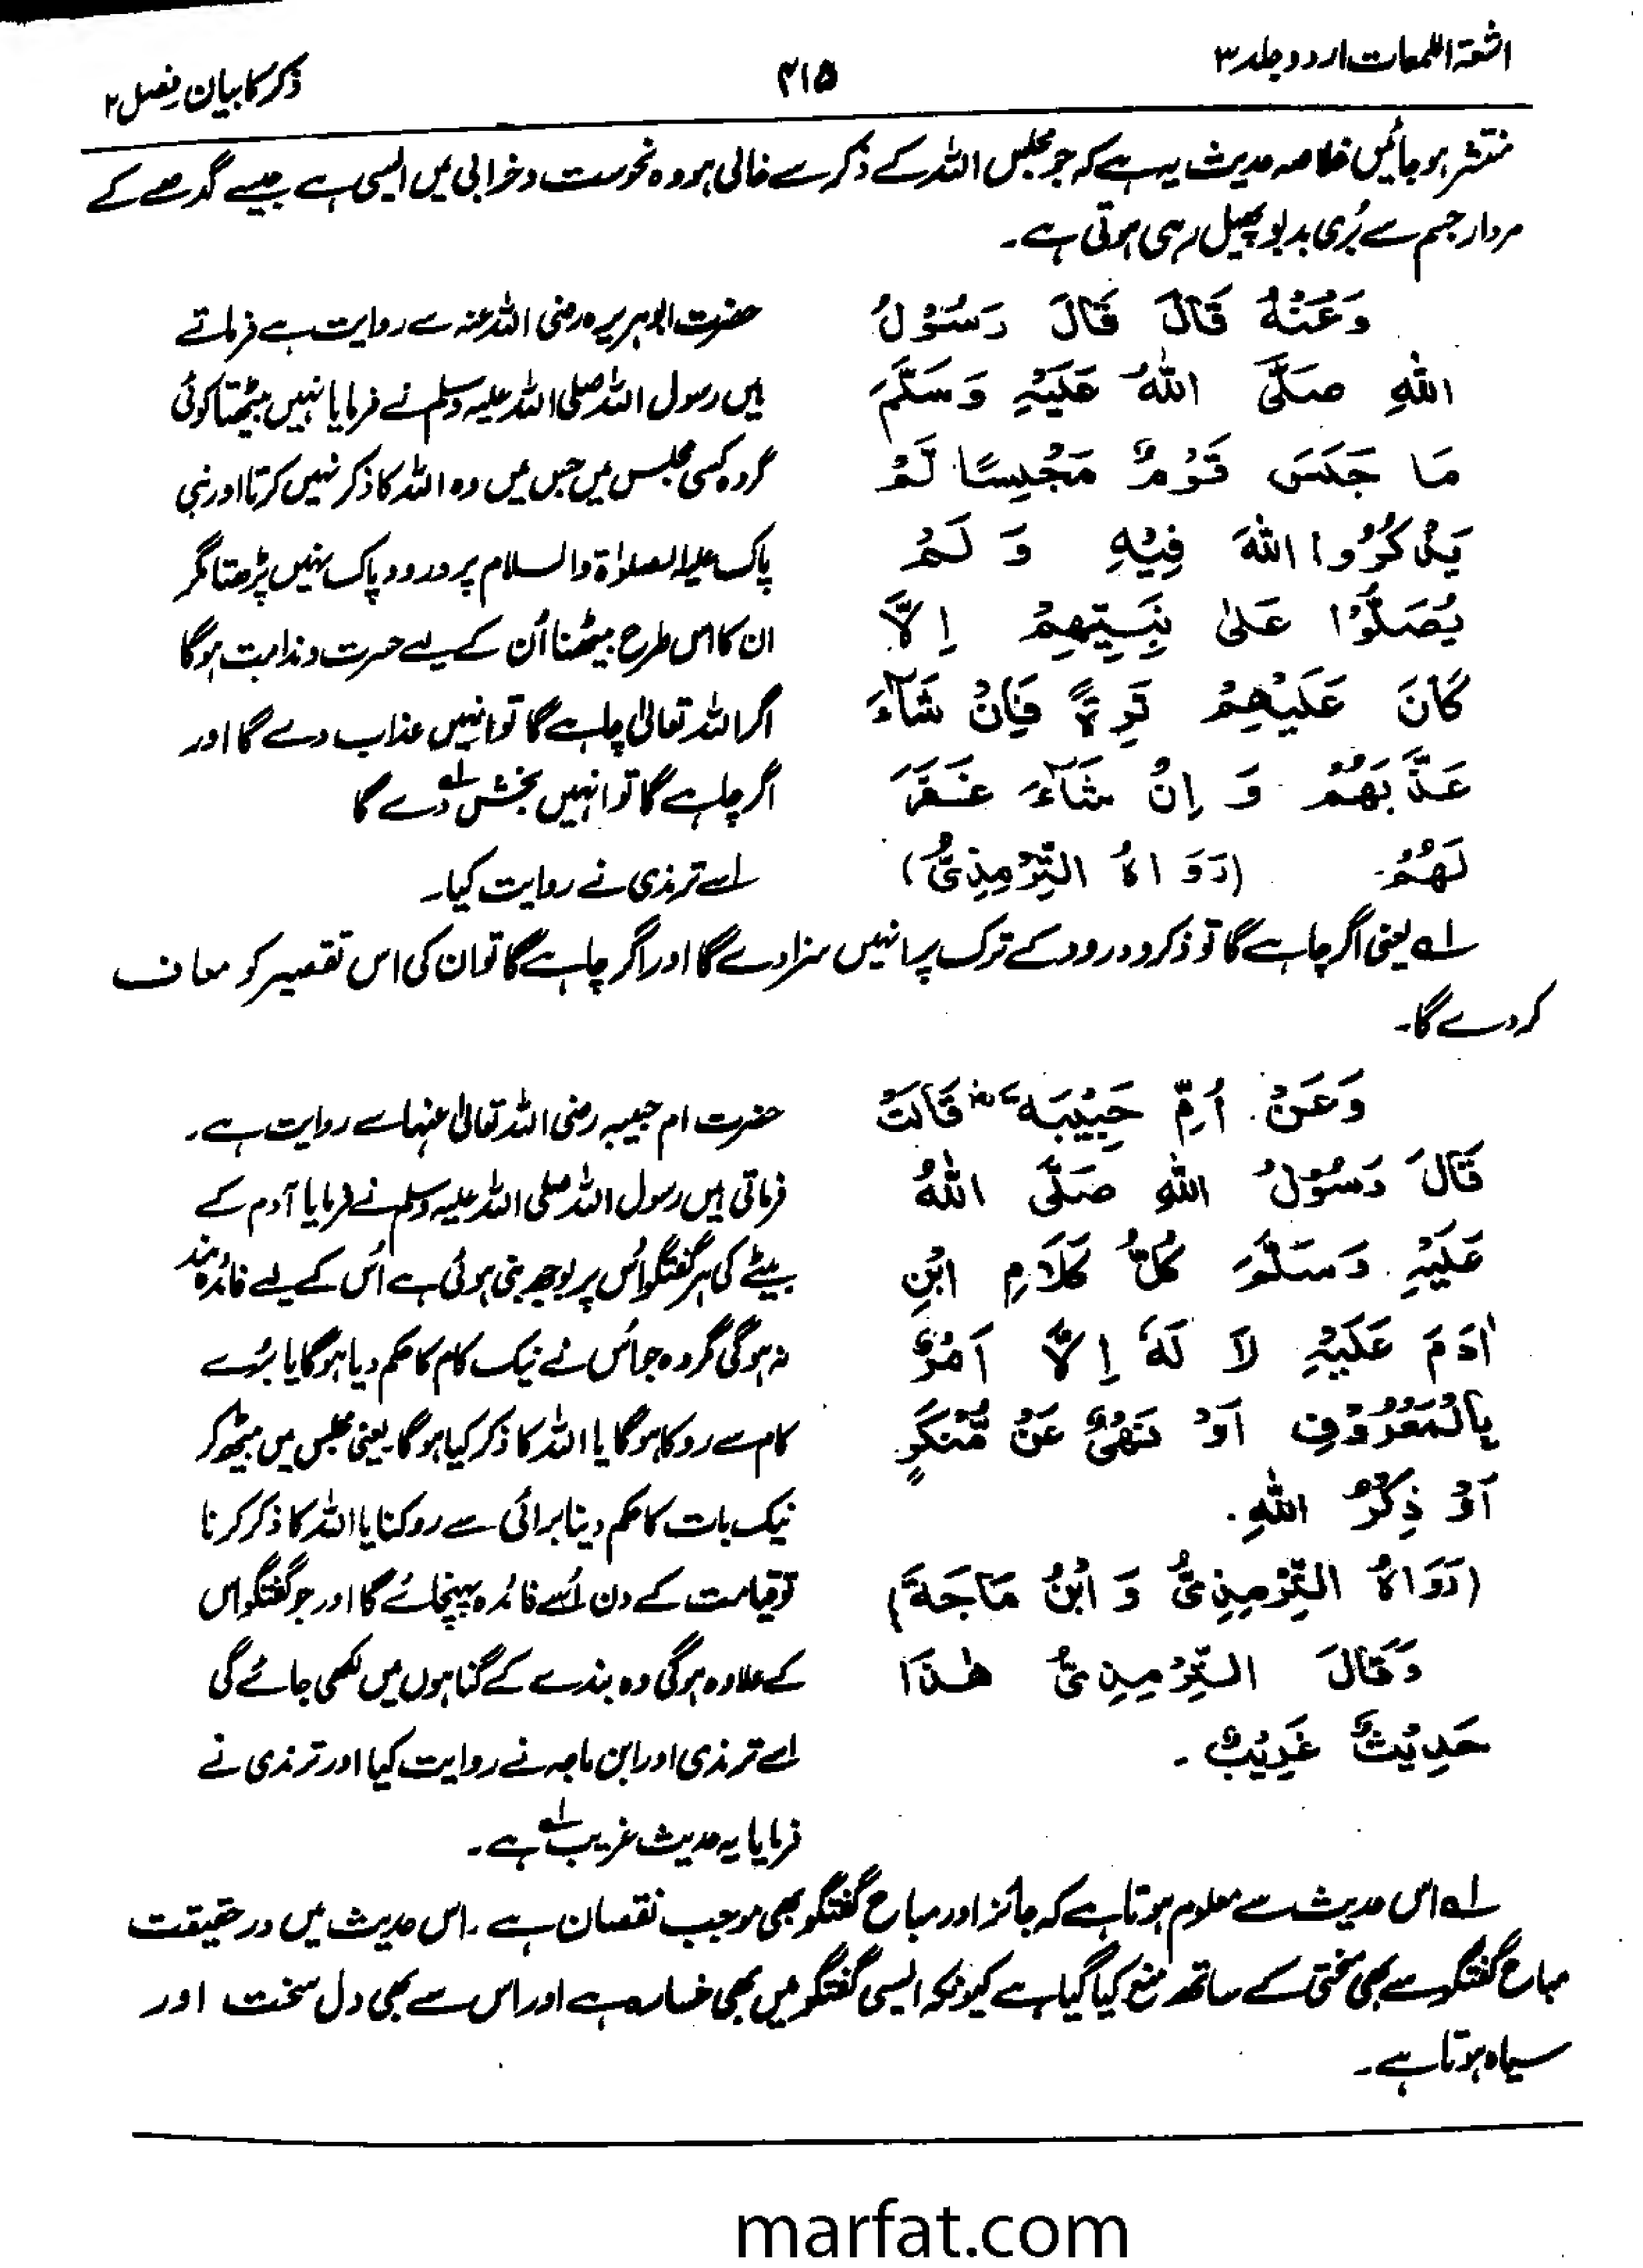 اشعۃ اللمعات اردو جلد ۳
۴۱۵
ذکر کا بیان فصل ۲
منتشر ہو جائیں خلاصہ حدیث یہ ہے کہ جو مجلس اللہ کے ذکر سے خالی ہو وہ نحوست و خرابی میں ایسی ہے جیسے گدھے کے
مردار جسم سے بُری بدبو پھیل رہی ہوتی ہے۔
وَعَنْهُ قَالَ قَالَ رَسُوْلُ
اللهِ صَلَّى اللهُ عَلَيْهِ وَسَلَّمَ
مَا جَلَسَ قَوْمٌ مَجْلِسًا لَمْ
يَذْكُرُوا اللهَ فِيْهِ وَ لَمْ
يُصَلُّوْا عَلٰى نَبِيِّهِمْ اِلَّا
كَانَ عَلَيْهِمْ تِرَةً فَاِنْ شَآءَ
عَذَّبَهُمْ وَ اِنْ شَآءَ غَفَرَ
لَهُمْ. (رَوَاهُ التِّرْمِذِيُّ)
حضرت ابوہریرہ رضی اللہ عنہ سے روایت ہے فرماتے
ہیں رسول اللہ صلی اللہ علیہ وسلم نے فرمایا نہیں بیٹھتا کوئی
گروہ کسی مجلس میں جس میں وہ اللہ کا ذکر نہیں کرتا اور نبی
پاک علیہ الصلوٰۃ والسلام پر درود پاک نہیں پڑھتا مگر
ان کا اس طرح بیٹھنا اُن کے لیے حسرت و ندامت ہوگا
اگر اللہ تعالیٰ چاہے گا تو انہیں عذاب دے گا اور
اگر چاہے گا تو انہیں بخش دے گا لہ
اسے ترمذی نے روایت کیا۔
لہ یعنی اگر چاہے گا تو ذکر و درود کے ترک پر انہیں سزا دے گا اور اگر چاہے گا تو ان کی اس تقصیر کو معاف
کر دے گا۔
وَعَنْ اُمِّ حَبِيْبَةَ رض قَالَتْ
قَالَ رَسُوْلُ اللهِ صَلَّى اللهُ
عَلَيْهِ وَسَلَّمَ كُلُّ كَلَامِ ابْنِ
اٰدَمَ عَلَيْهِ لَا لَهٗ اِلَّا اَمْرٌ
بِالْمَعْرُوْفِ اَوْ نَهْيٌ عَنْ مُّنْكَرٍ
اَوْ ذِكْرُ اللهِ.
(رَوَاهُ التِّرْمِذِيُّ وَ ابْنُ مَاجَةَ)
وَقَالَ التِّرْمِذِيُّ هٰذَا
حَدِيْثٌ غَرِيْبٌ۔
حضرت ام حبیبہ رضی اللہ تعالیٰ عنہا سے روایت ہے۔
فرماتی ہیں رسول اللہ صلی اللہ علیہ وسلم نے فرمایا آدم کے
بیٹے کی ہر گفتگو اُس پر بوجھ بنی ہوئی ہے اُس کے لیے فائدہ مند
نہ ہوگی مگر وہ جو اُس نے نیک کام کا حکم دیا ہوگا یا بُرے
کام سے روکا ہوگا یا اللہ کا ذکر کیا ہوگا یعنی مجلس میں بیٹھ کر
نیک بات کا حکم دینا برائی سے روکنا یا اللہ کا ذکر کرنا
تو قیامت کے دن اُسے فائدہ پہنچائے گا اور جو گفتگو اس
کے علاوہ ہوگی وہ بندے کے گناہوں میں لکھی جائے گی
اسے ترمذی اور ابن ماجہ نے روایت کیا اور ترمذی نے
فرمایا یہ حدیث غریب لہ ہے۔
لہ اس حدیث سے معلوم ہوتا ہے کہ جائز اور مباح گفتگو بھی موجب نقصان ہے۔ اس حدیث میں در حقیقت
مباح گفتگو سے بھی سختی کے ساتھ منع کیا گیا ہے کیونکہ ایسی گفتگو میں بھی خسارہ ہے اور اس سے بھی دل سخت اور
سیاہ ہوتا ہے۔
marfat.com